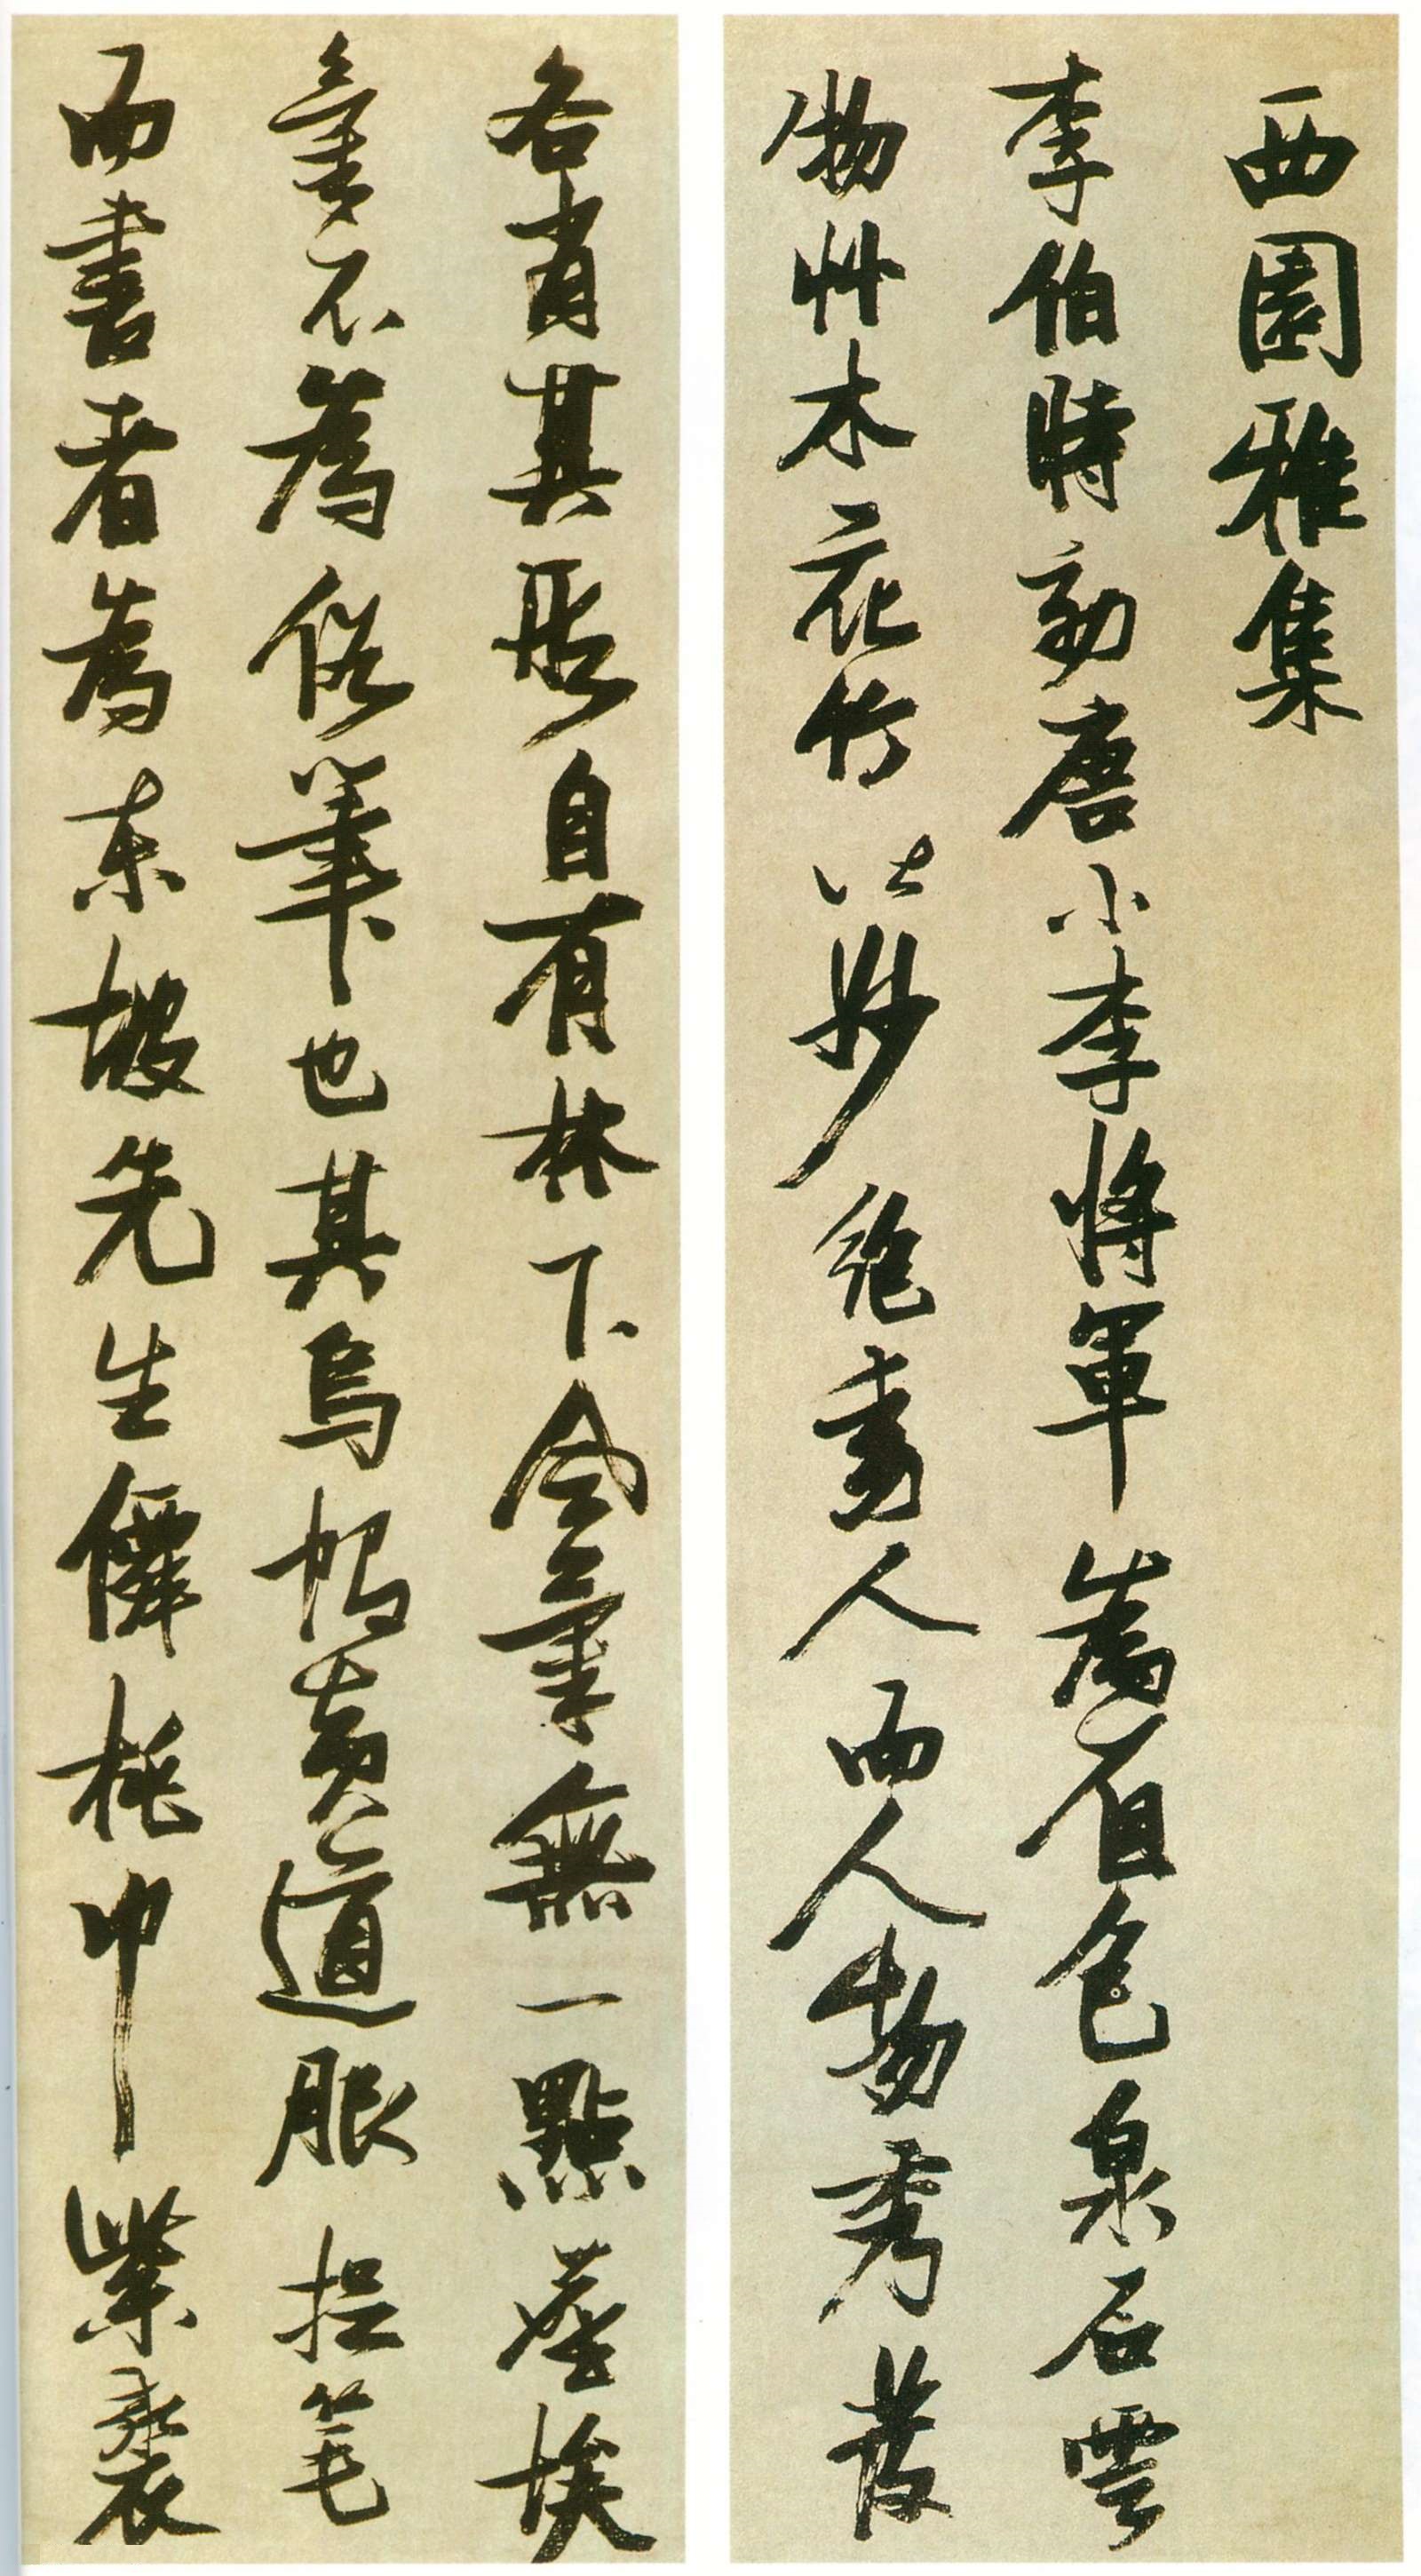 西園雅集
李伯時効唐小李將軍為着色泉石雲
物艸木花竹皆妙絕動人而人物秀發
各肖其形自有林下無一點塵埃
不為俗筆也其烏帽黃道服捉笔
而書者為東坡先生僊桃巾紫裘